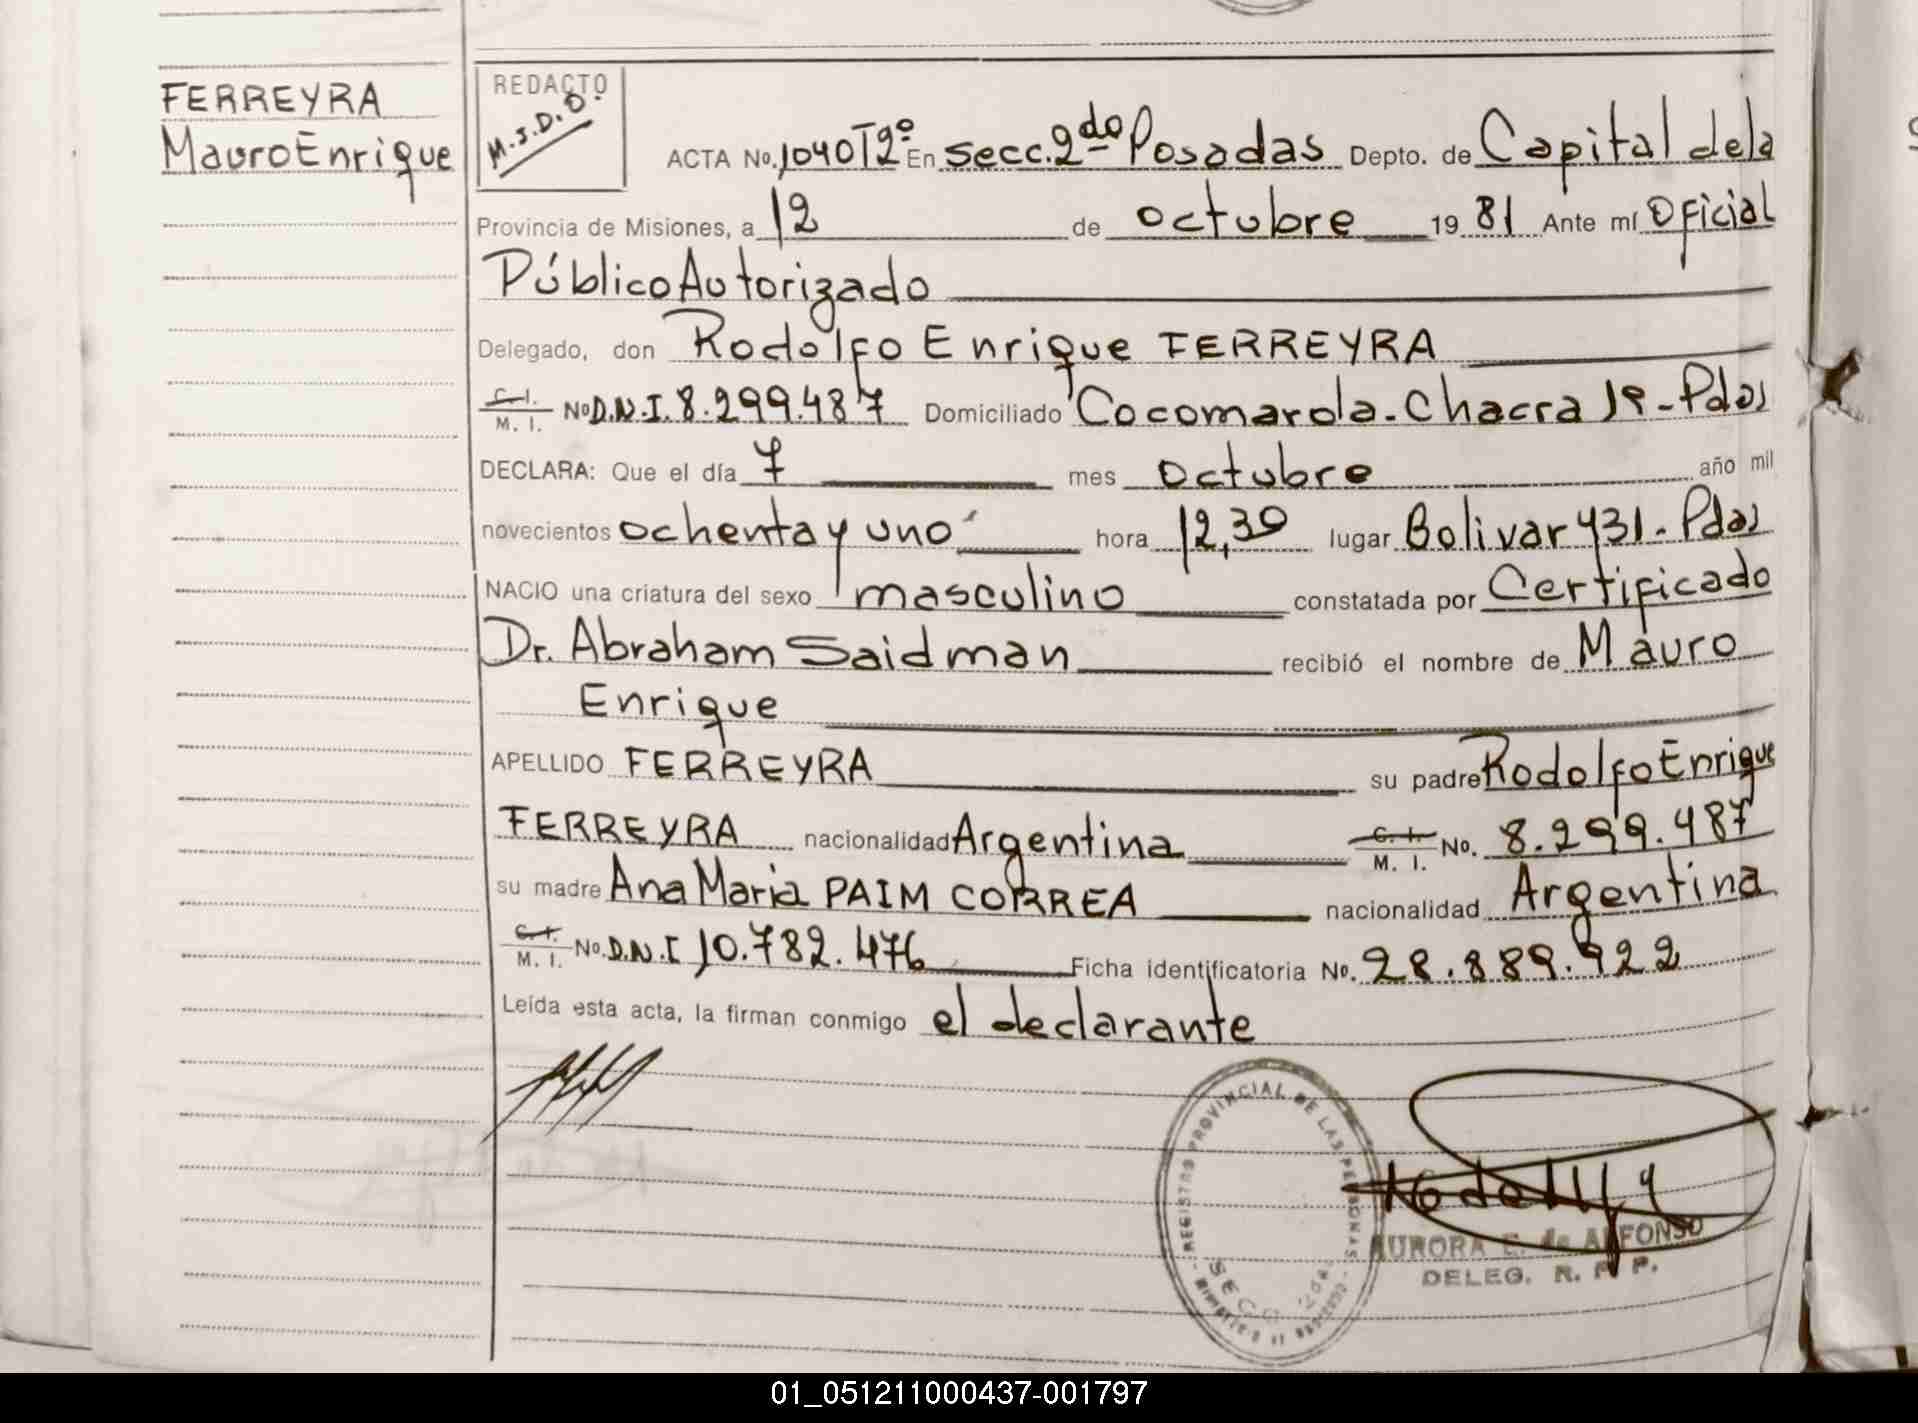 FERREYRA
Mauro Enrique
REDACTO
M.J.D.O.
ACTA No. 1040 Tº2 En secc. 2do Posadas Depto. de Capital de la
Provincia de Misiones, a 12 de octubre 19 81 Ante mí Oficial
Público Autorizado
Delegado, don Rodolfo Enrique FERREYRA
C.I. M. I. No D.N.I. 8.299.487 Domiciliado Cocomarola - Chacra 19 - Pdas
DECLARA: Que el día 7 mes octubre año mil
novecientos ochenta y uno hora 12,30 lugar Bolivar 431 - Pdas
NACIO una criatura del sexo masculino constatada por Certificado
Dr. Abraham Saidman recibió el nombre de Mauro
Enrique
APELLIDO FERREYRA su padre Rodolfo Enrique
FERREYRA nacionalidad Argentina C. I. M. I. No. 8.299.487
su madre Ana Maria PAIM CORREA nacionalidad Argentina
C. I. M. I. No. D.N.I 10.782.476 Ficha identificatoria No. 28.889.922
Leída esta acta, la firman conmigo el declarante
REGISTRO PROVINCIAL DE LAS PERSONAS
SECC 2da
AURORA E. de ALFONSO
DELEG. R. P. P.
01_051211000437-001797